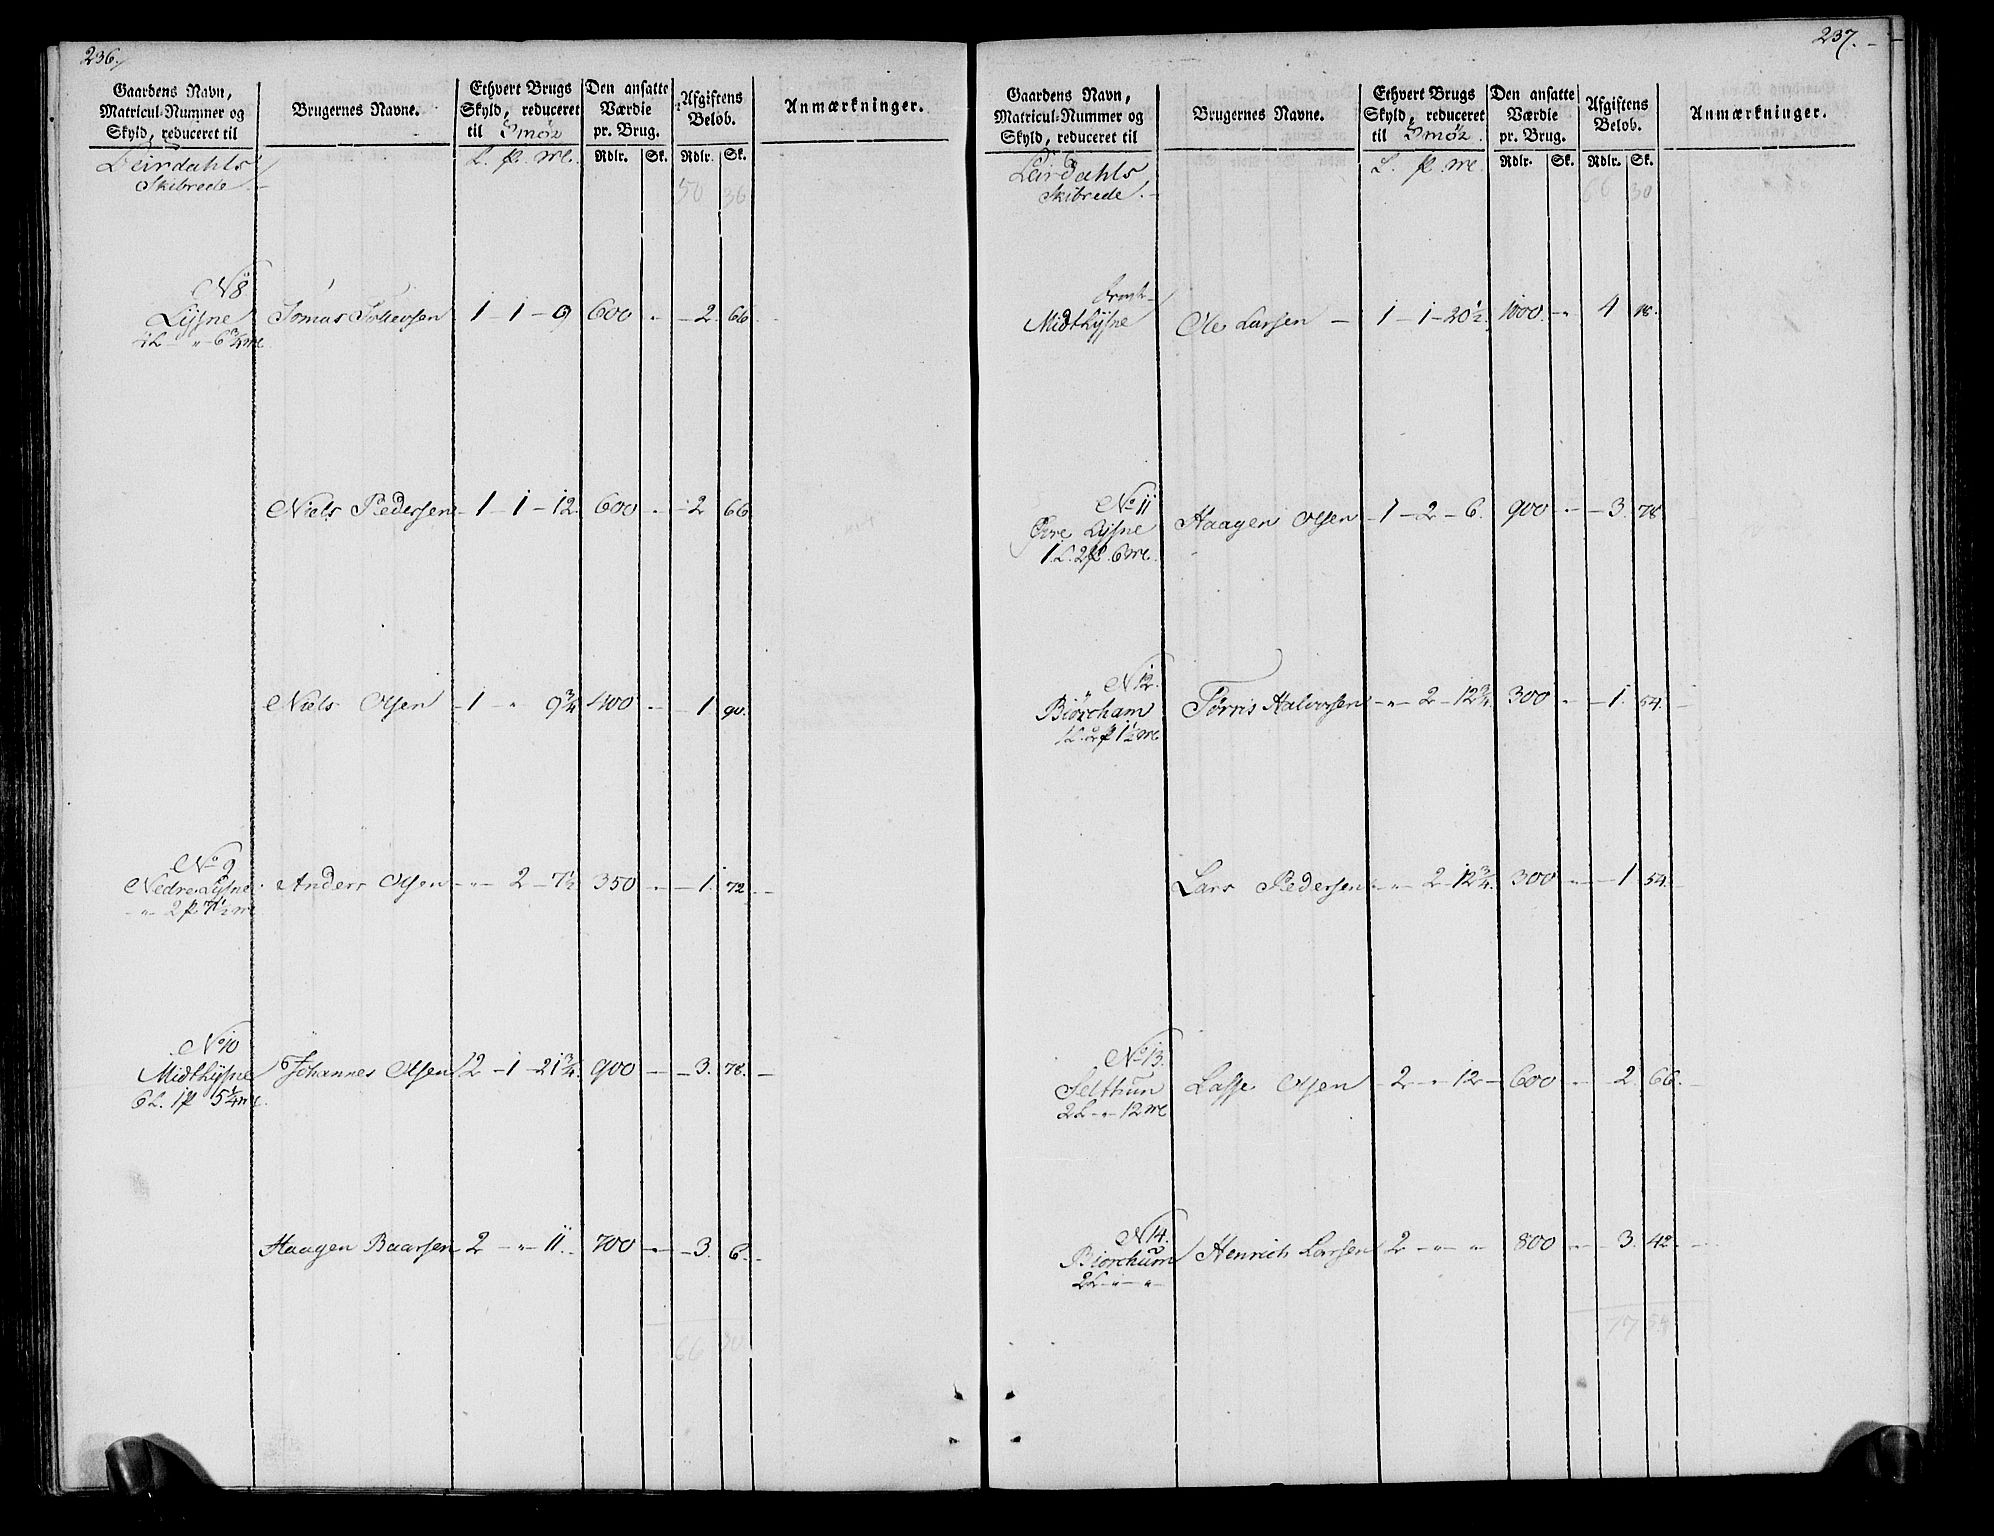 236.
Gaardens Navn, Matricul-Nummer og Skyld, reduceret til
Brugernes Navne.
Ethvert Brugs Skyld, reduceret til Smör
Den ansatte Værdie pr. Brug.
Afgiftens Beløb.
Anmærkninger.
Leirdahls Skibrede.
L. p. mk.
Rdlr. Sk. Rdlr. Sk.
50 36
N 8
Lysne Tomas 1 - 1 - 9 600 - 2 66
Niels Pedersen - 1 - 1 - 12 600 - 2 66
Niels Olsen - 1 - " 9 3/4 400 - 1 90.
No 9
Nedre Lysne Anders Olsen - " - 2 - 7 1/2 350 - 1. 72
- " - 2 p 7 1/2 mk
No 10
Midtlysne Johannes Olsen 2 - 1 - 21 3/4 900 - 3. 78.
6 L. 1 p 5 1/4 mk.
Haagen Baarsen 2 - " - 11. 700 - 3. 6.
66 30
237.
Gaardens Navn, Matricul-Nummer og Skyld, reduceret til
Brugernes Navne.
Ethvert Brugs Skyld, reduceret til Smör.
Den ansatte Værdie pr. Brug.
Afgiftens Beløb.
Anmærkninger.
Leirdahls Skibrede.
L. p. mk.
Rdlr. Sk. Rdlr. Sk.
66 30
Midtlysne Ole Larsen - 1 - 1 - 20 1/2. 1000. - " 4 18.
No 11
Øvre Lysne Haagen Olsen - 1 - 2 - 6. 900 - 3. 78
1 L. 2 p. 6 mk.
N 12.
Biörcham Törris Halvorsen - " - 2 - 12 3/4 300 - 1. 54.
1 L. 2 p 1 1/2 mk
Lars Pedersen - " - 2 - 12 3/4. 300 - 1 54.
No 13.
Selthun Lasse Olsen - 2 - " 12 - 600 - 2. 66.
2 L - " - 12 mk
N 14.
Biörchum Henrich Larsen 2 - " - " 800 - 3. 42.
2 L - " - "
17 54